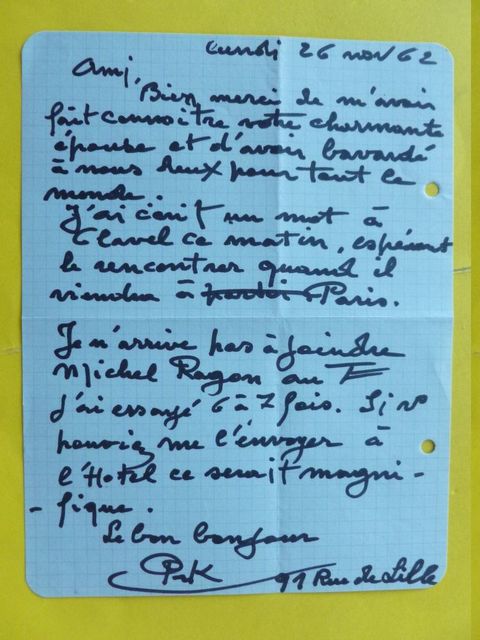 Lundi 26 nov 62
Ami,
Bien merci de m'avoir
fait connoître votre charmante
épouse et d'avoir bavardé
à nous deux pour tout le
monde.
J'ai écrit un mot à
Clavel ce matin, espérant
le rencontrer quand il
viendra à Paris.
Je n'arrive pas à joindre
Michel Ragon au TF
j'ai essayé 6 à 7 fois. Si vs
pouviez me l'envoyer à
l'Hotel ce serait magni-
-fique.
Le bon bonjour
PK 91 Rue de Lille